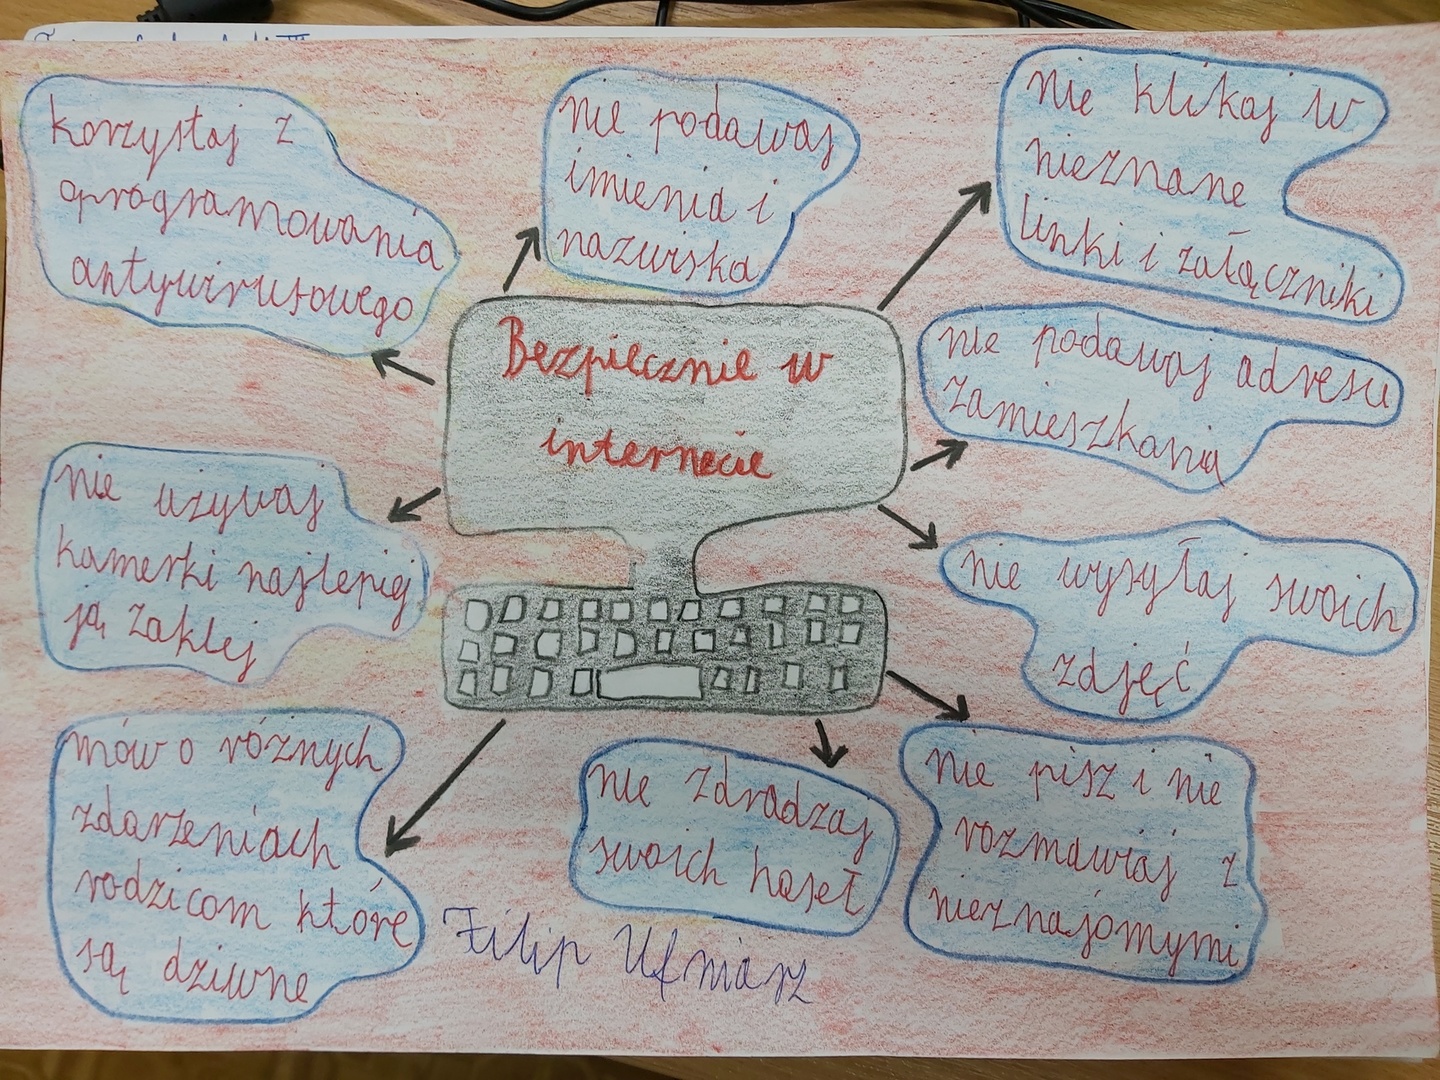 korzystaj z
oprogramowania
antywirusowego
nie podawaj
imienia i
nazwiska
nie klikaj w
nieznane
linki i załączniki
Bezpiecznie w
internecie
nie podawaj adresu
zamieszkania
nie używaj
kamerki najlepiej
ją zaklej
nie wysyłaj swoich
zdjęć
mów o różnych
zdarzeniach
rodzicom które
są dziwne
nie zdradzaj
swoich haseł
nie pisz i nie
rozmawiaj z
nieznajomymi
Filip Ufniarz